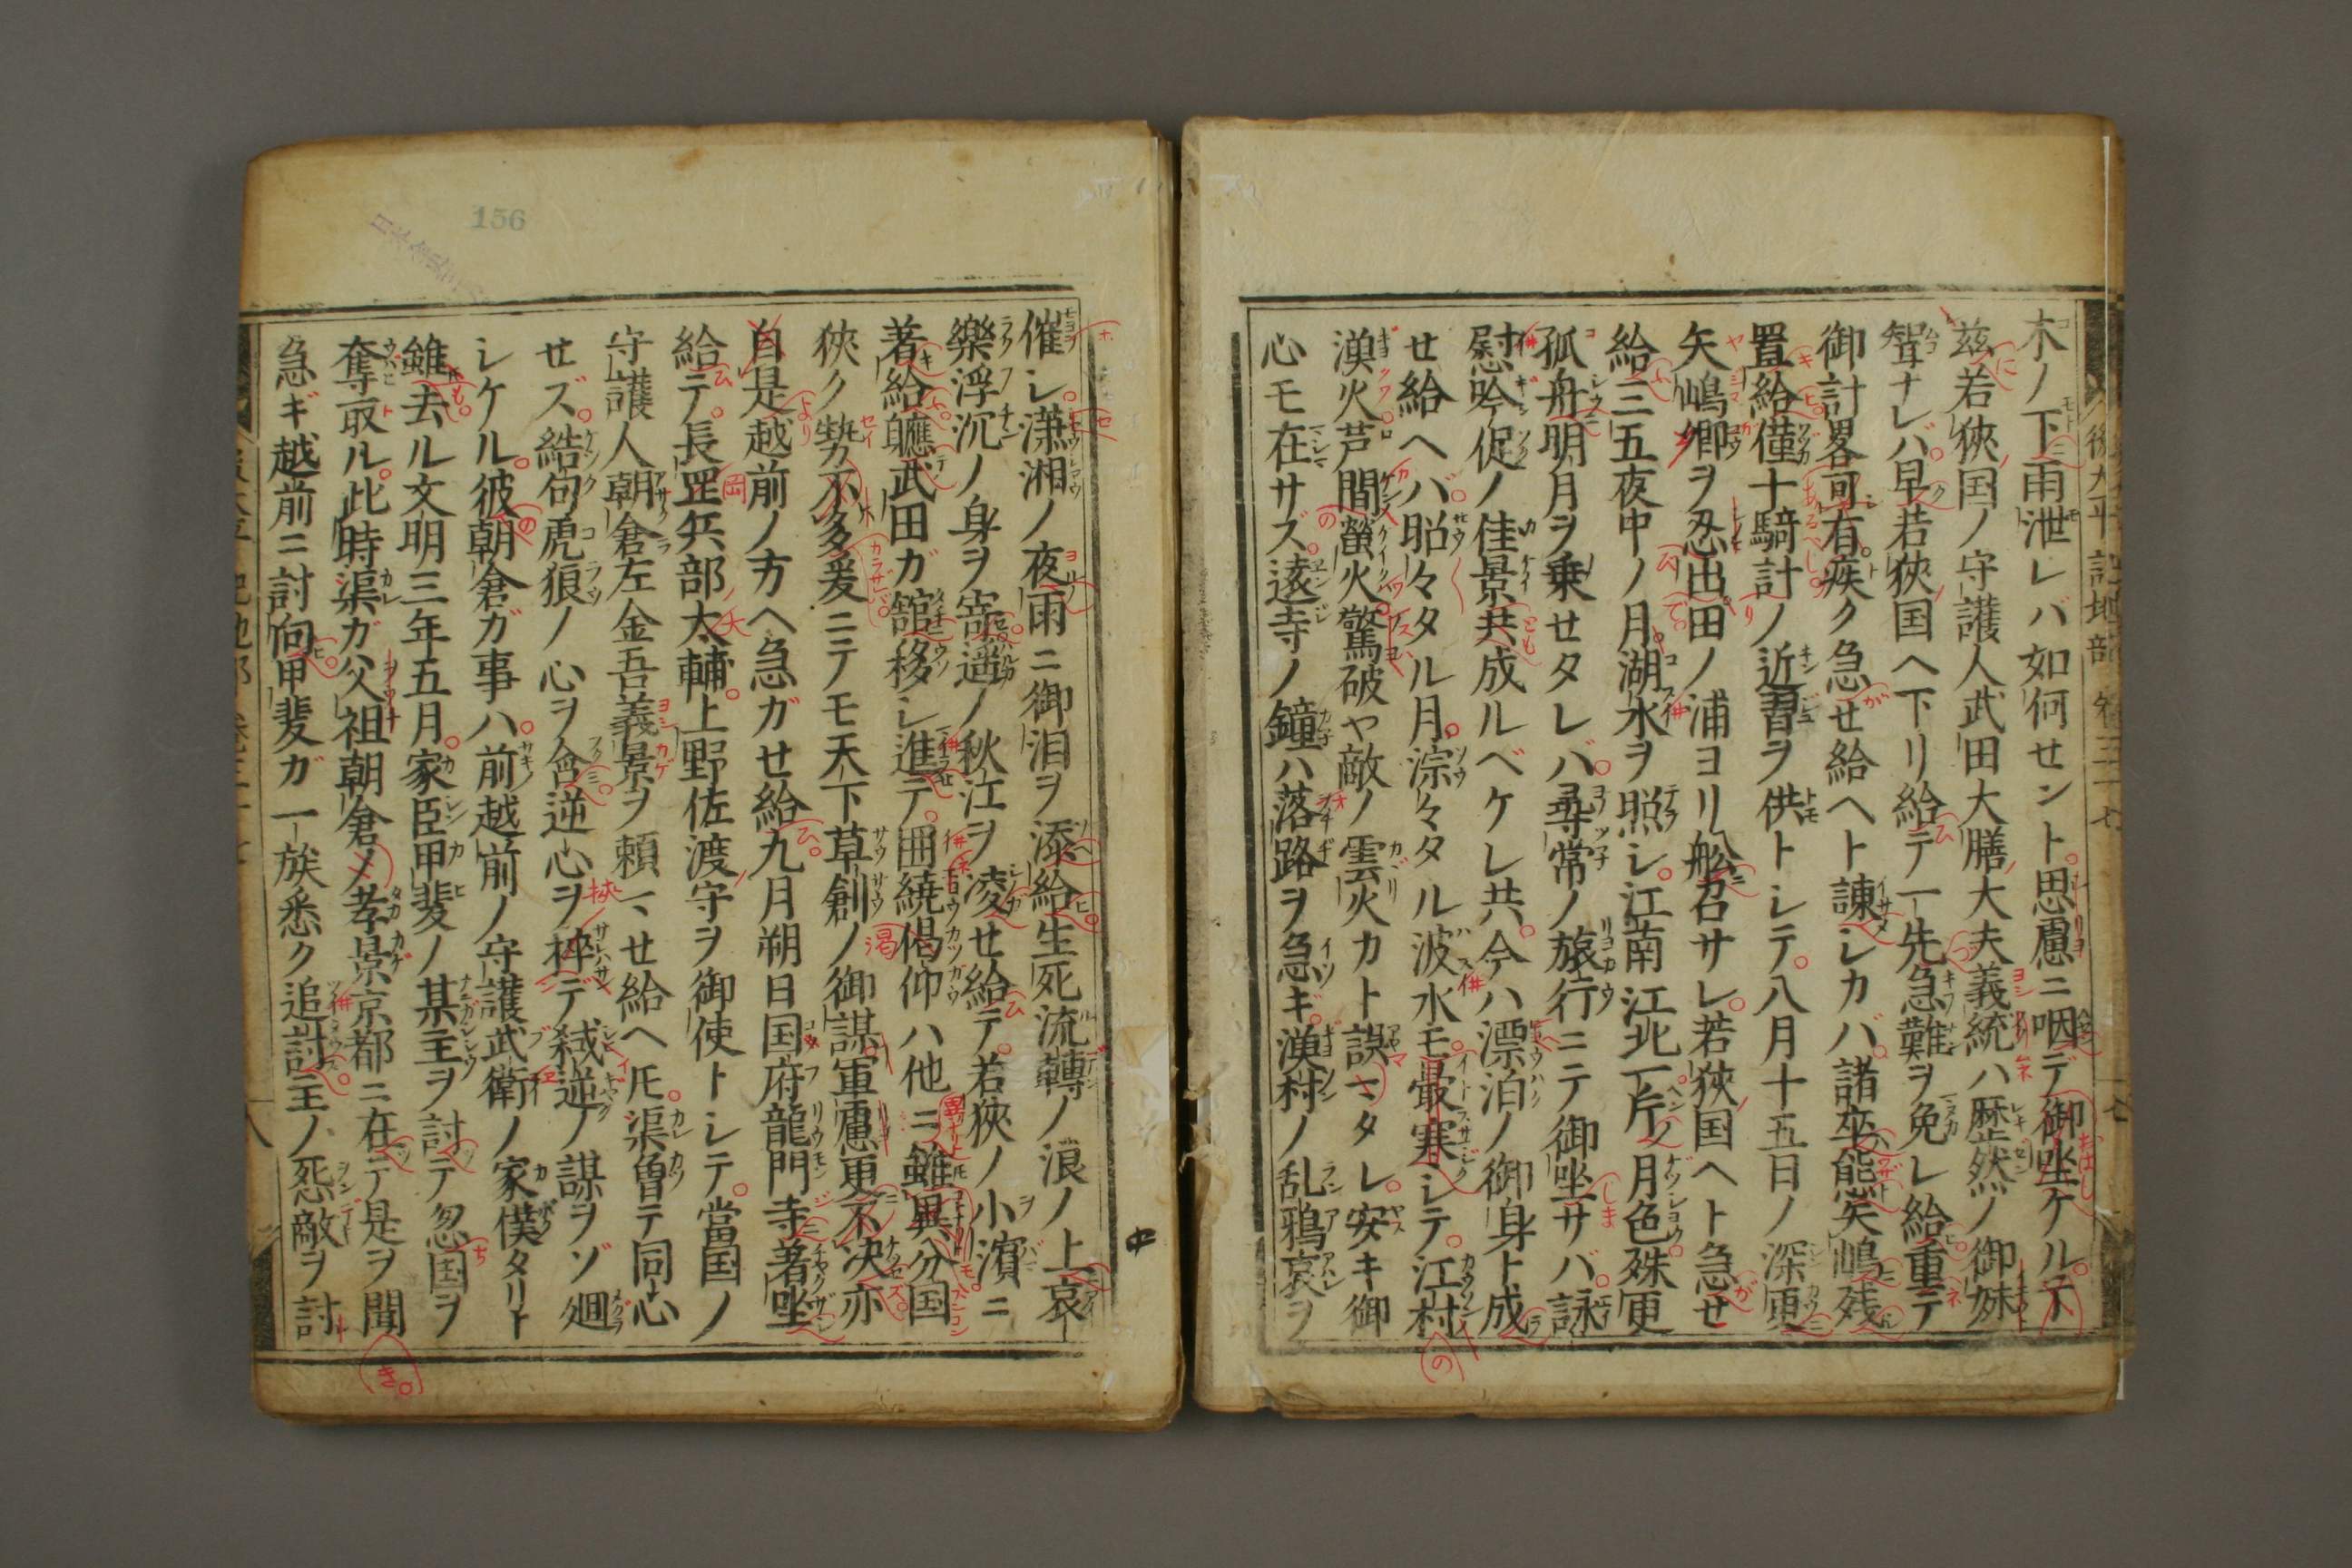 木ノ下雨泄レバ如何セント思慮ニ咽デ御坐ケル
茲若狹国ノ守護人武田大膳大夫義統ハ歴然ノ御妹
聟ナレバ早若狹国ヘ下リ給テ一先急難ヲ免レ給重テ
御計畧可有疾ク急セ給ヘト諌シカバ諸卒熊矢嶋残
置給僅十騎計ノ近習ヲ供トシテ八月十五日ノ深更
矢嶋郷ヲ忍出田ノ浦ヨリ舩召サレ若狹国ヘト急セ
給三五夜中ノ月湖水ヲ照シ江南江北一片ノ月色殊更
孤舟明月ヲ乗セタレバ尋常ノ旅行ニテ御坐サバ詠
慰吟促ノ佳景共成ルベケレ共今ハ漂泊ノ御身ト成
セ給ヘバ昭々タル月淙々タル波水モ最寒シテ江村
漁火芦間螢火驚破ヤ敵ノ雲火カト誤マタレ安キ御
心モ在サズ遠寺ノ鐘ハ落路ヲ急ギ漁村ノ乱鴉哀ヲ
後太平記地部 卷三十七
十七
催シ瀟湘ノ夜雨ニ御泪ヲ添給生死流轉ノ浪ノ上哀
樂浮沉ノ身ヲ寄遥ノ秋江ヲ凌セ給テ若狹ノ小濱ニ
著給軈武田ガ舘移シ進テ囲繞偈仰ハ他ニ雖異分国
狹ク勢不多爰ニテモ天下草創ノ御謀軍慮更不决亦
自是越前ノ方ヘ急ガセ給九月朔日国府龍門寺著坐
給テ長罡兵部太輔上野佐渡守ヲ御使トシテ當国ノ
守護人朝倉左金吾義景ヲ頼マセ給ヘ𪜈渠曽テ同心
セズ結句虎狼ノ心ヲ含逆心ヲ捽デ弑逆ノ謀ヲゾ廻
シケル彼朝倉ガ事ハ前越前ノ守護武衛ノ家僕タリト
雖去ル文明三年五月家臣甲斐ノ某主ヲ討テ忽国ヲ
奪取ル此時渠ガ父祖朝倉メ孝景京都ニ在テ是ヲ聞
急ギ越前ニ討向甲斐ガ一族悉ク追討主ノ怨敵ヲ討
十八
156